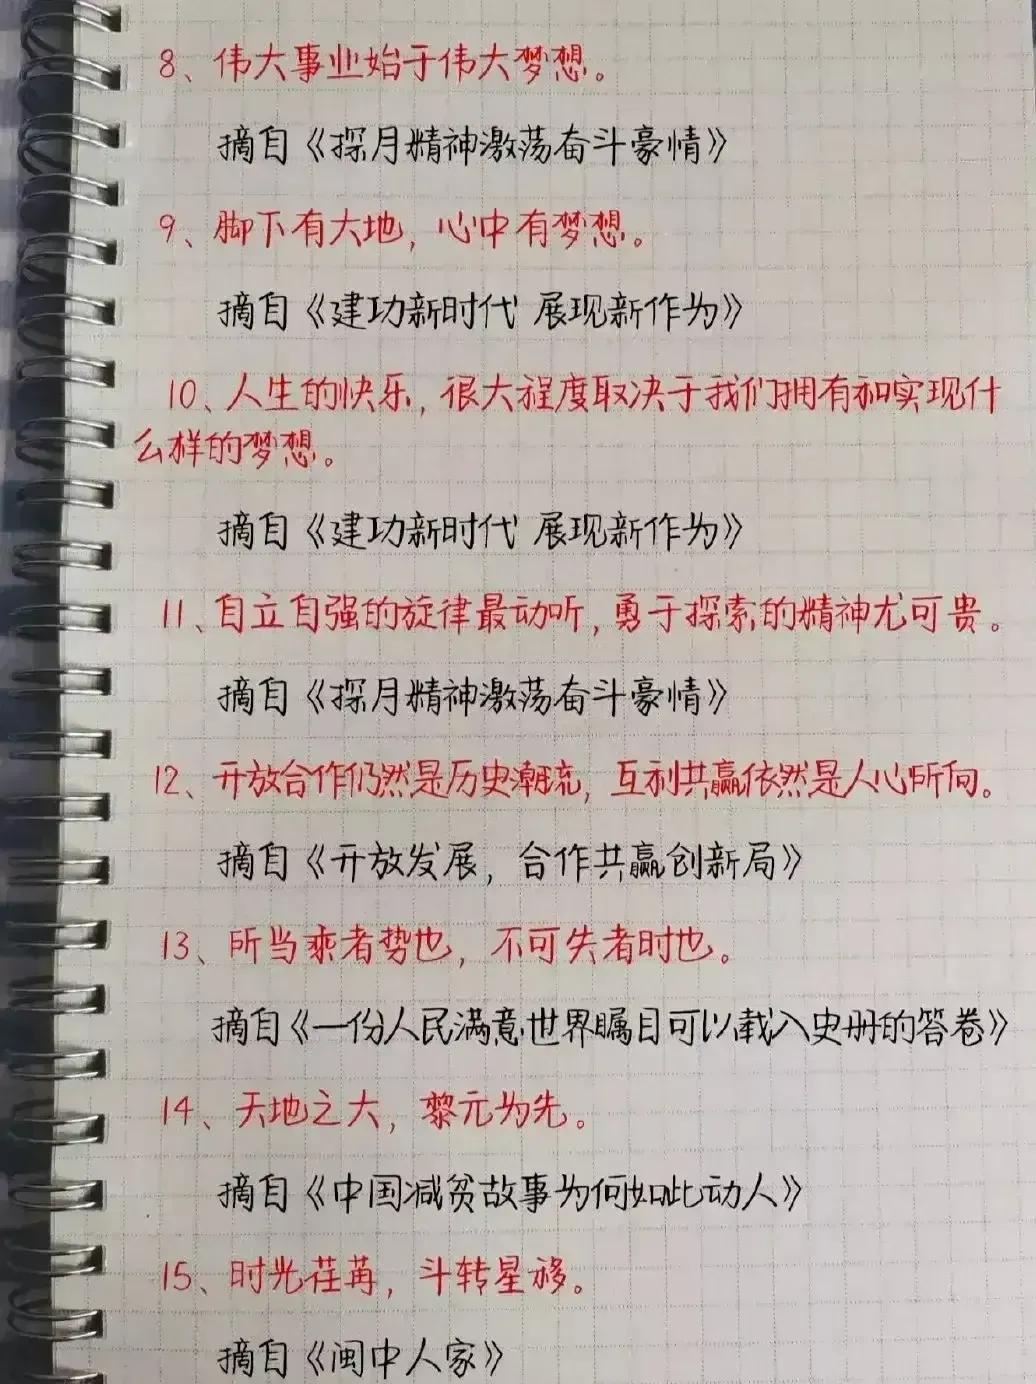 8、伟大事业始于伟大梦想。
摘自《探月精神激荡奋斗豪情》
9、脚下有大地，心中有梦想。
摘自《建功新时代 展现新作为》
10、人生的快乐，很大程度取决于我们拥有和实现什
么样的梦想。
摘自《建功新时代 展现新作为》
11、自立自强的旋律最动听，勇于探索的精神尤可贵。
摘自《探月精神激荡奋斗豪情》
12、开放合作仍然是历史潮流，互利共赢依然是人心所向。
摘自《开放发展，合作共赢创新局》
13、所当乘者势也，不可失者时也。
摘自《一份人民满意世界瞩目可以载入史册的答卷》
14、天地之大，黎元为先。
摘自《中国减贫故事为何如此动人》
15、时光荏苒，斗转星移。
摘自《闽中人家》